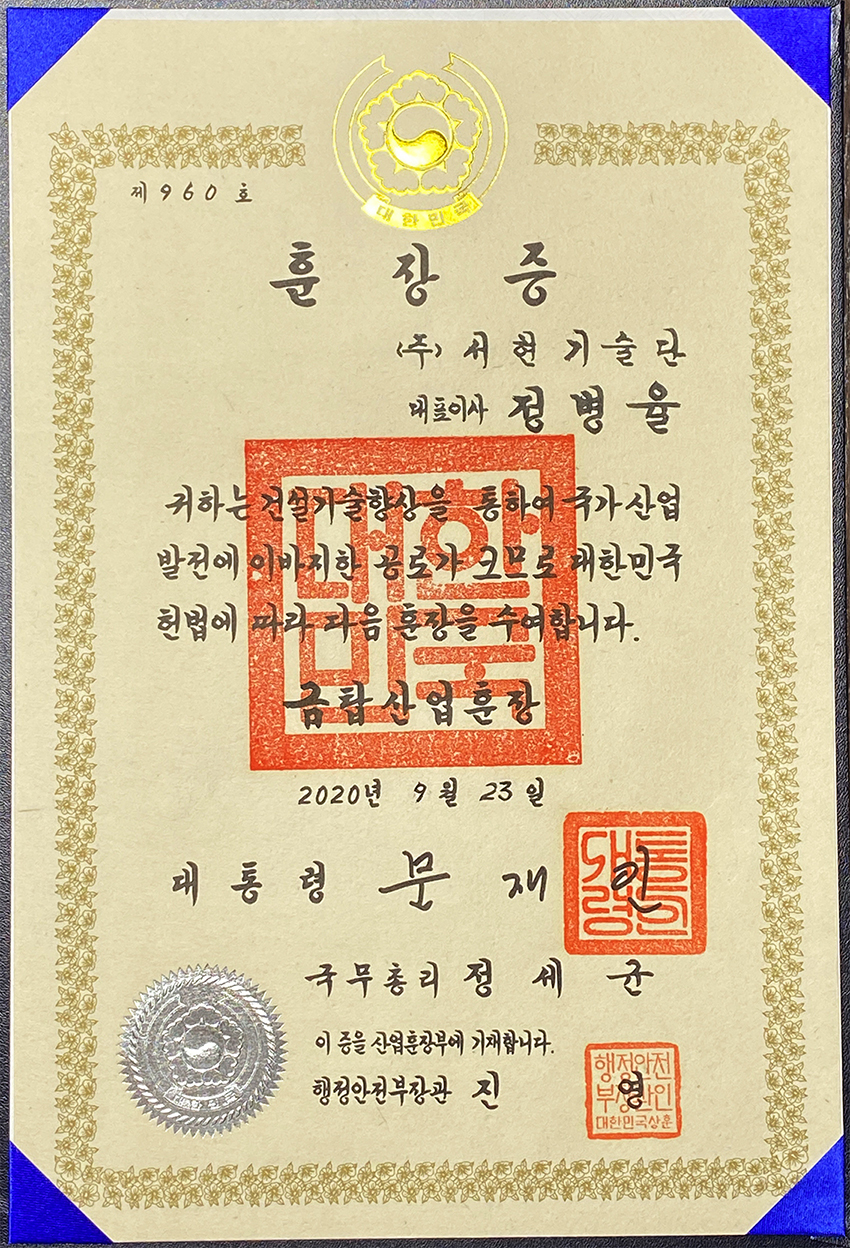 대한민국
제960호
훈장증
(주)서현기술단
대표이사 정병율
귀하는 건설기술향상을 통하여 국가산업
발전에 이바지한 공로가 크므로 대한민국
헌법에 따라 다음 훈장을 수여합니다.
대한
민국
금탑산업훈장
2020년 9월 23일
대통령 문재인
대통
령인
국무총리 정세균
이 증을 산업훈장부에 기재합니다.
행정안전부장관 진영
행정안전
부장관인
대한민국상훈
대한민국